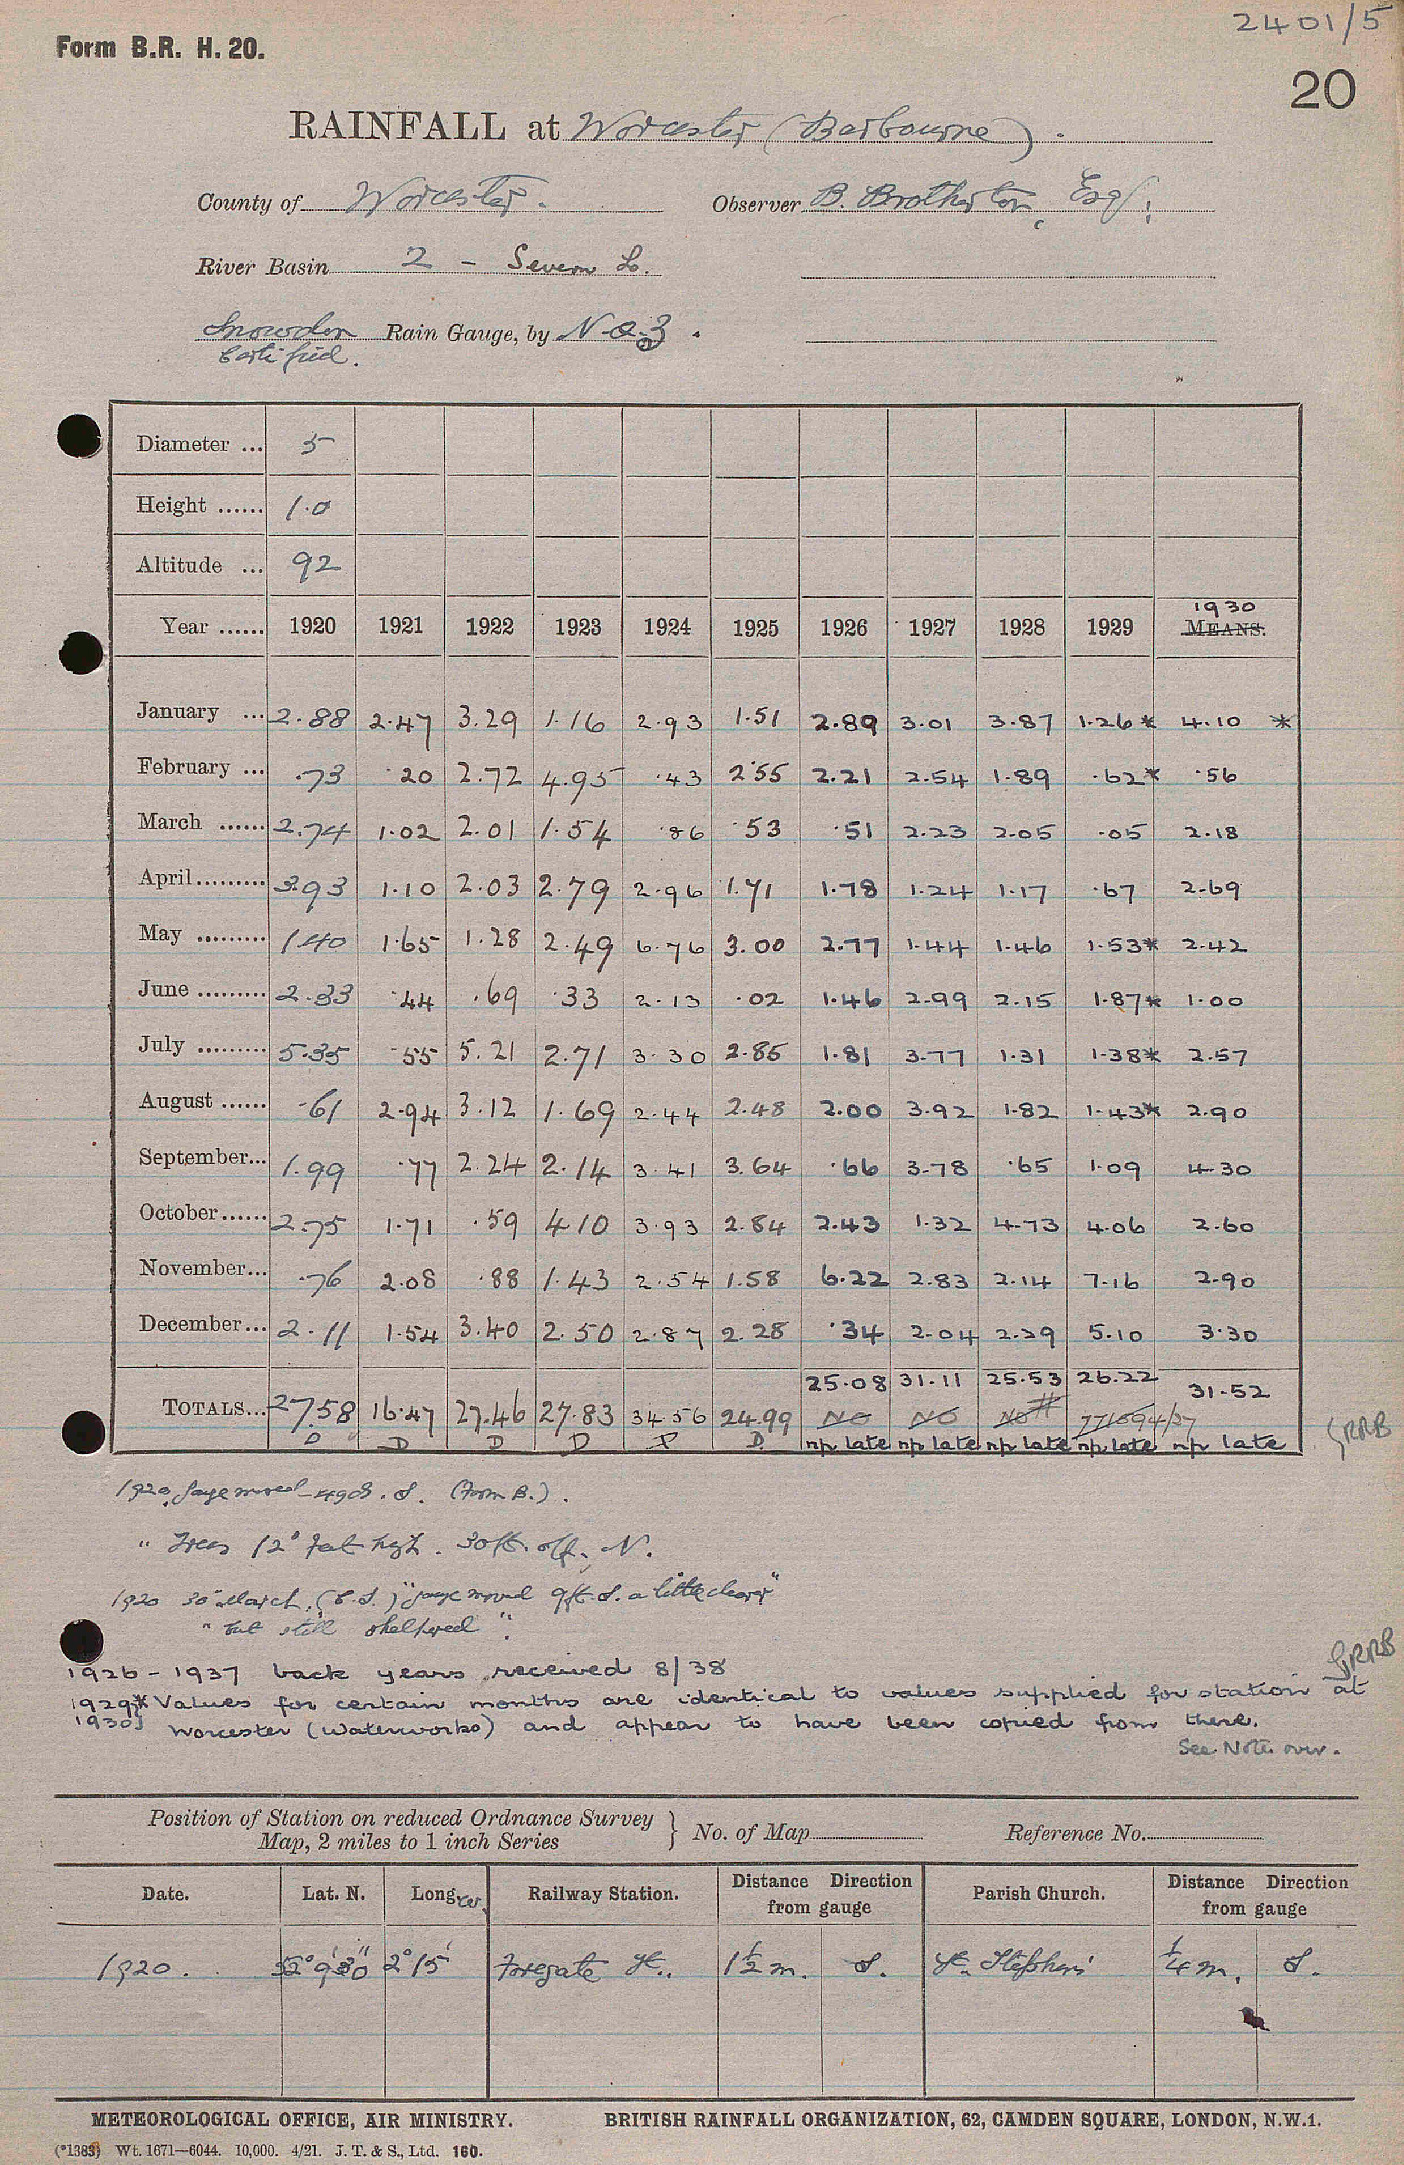 2401/5
Form B.R. H. 20.
20
RAINFALL at Worcester (Barbourne).
County of Worcester. Observer B. Brotherton, Esq.
River Basin 2 - Severn L.
Snowdon Rain Gauge, by N & Z.
Certified.
Diameter ... 5
Height ...... 1.0
Altitude ... 92
1930
Year ...... 1920 1921 1922 1923 1924 1925 1926 1927 1928 1929 MEANS.
January ... 2.88 2.47 3.29 1.16 2.93 1.51 2.89 3.01 3.87 1.26* 4.10 *
February ... .73 .20 2.72 4.95 .43 2.55 2.21 2.54 1.89 .62* .56
March ...... 2.74 1.02 2.01 1.54 .86 .53 .51 2.23 2.05 .05 2.18
April......... 3.93 1.10 2.03 2.79 2.96 1.71 1.78 1.24 1.17 .67 2.69
May ......... 1.40 1.65 1.28 2.49 6.76 3.00 2.77 1.44 1.46 1.53* 2.42
June ......... 2.33 .44 .69 .33 2.13 .02 1.46 2.99 2.15 1.87* 1.00
July ......... 5.35 .55 5.21 2.71 3.30 2.85 1.81 3.77 1.31 1.38* 2.57
August ...... .61 2.94 3.12 1.69 2.44 2.48 2.00 3.92 1.82 1.43* 2.90
September... 1.99 .77 2.24 2.14 3.41 3.64 .66 3.78 .65 1.09 4.30
October...... 2.75 1.71 .59 4.10 3.93 2.84 2.43 1.32 4.73 4.06 2.60
November... .76 2.08 .88 1.43 2.54 1.58 6.22 2.83 2.14 7.16 2.90
December... 2.11 1.54 3.40 2.50 2.87 2.28 .34 2.04 2.29 5.10 3.30
25.08 31.11 25.53 26.22 31.52
TOTALS... 27.58 16.47 27.46 27.83 34.56 24.99 NO NO NO
D D D D P D np late np late np late np late np late
GRRB
1920. Gauge moved S. (Form B.).
" Trees 12 feet high. 30ft. off, N.
1920 30 March. (C.S.) "gauge moved 9ft. S. a little clearer"
"but still sheltered".
1926 - 1937 back years received 8/38
GRRB
1929 * Values for certain months are identical to values supplied for station at
1930 Worcester (Waterworks) and appear to have been copied from there.
See Note over.
Position of Station on reduced Ordnance Survey
Map, 2 miles to 1 inch Series } No. of Map Reference No.
Date. Lat. N. Long. W. Railway Station. Distance Direction from gauge Parish Church. Distance Direction from gauge
1920. 52° 9' 30" 2° 15' Foregate St. 1½ m. S. St. Stephens' ¼ m. S.
METEOROLOGICAL OFFICE, AIR MINISTRY. BRITISH RAINFALL ORGANIZATION, 62, CAMDEN SQUARE, LONDON, N.W.1.
(*1383) Wt. 1671—6044. 10,000. 4/21. J. T. & S., Ltd. 160.